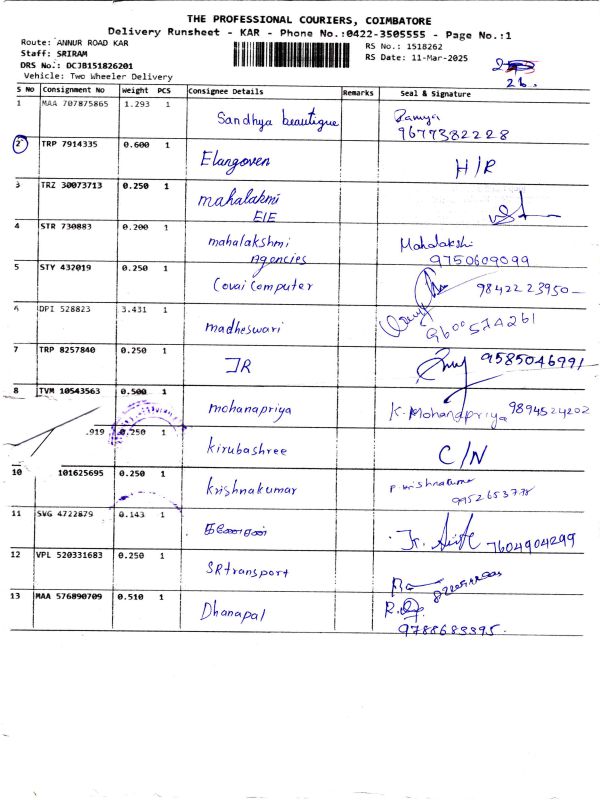 THE PROFESSIONAL COURIERS, COIMBATORE
Delivery Runsheet - KAR - Phone No.:0422-3505555 - Page No.:1
Route: ANNUR ROAD KAR
Staff: SRIRAM
DRS No.: DCJB151826201
Vehicle: Two Wheeler Delivery
RS No.: 1518262
RS Date: 11-Mar-2025
26.
S No Consignment No Weight PCS Consignee Details Remarks Seal & Signature
1 MAA 707875865 1.293 1 Sandhya beautique Ramya
9677382228
2 TRP 7914335 0.600 1 Elangoven H/R
3 TRZ 30073713 0.250 1 mahalakmi
EIE
4 STR 730883 0.200 1 mahalakshmi Mahalakshi
Agencies 9750609099
5 STY 432019 0.250 1 Covai Computer 9842223950
6 DPI 528823 3.431 1 madheswari 9600574261
7 TRP 8257840 0.250 1 JR 9585046991
8 TVM 10543563 0.500 1 mohanapriya K. Mohanapriya 9894524202
.919 0.250 1 kirubashree C/N
10 101625695 0.250 1 krishnakumar P krishnakumar
11 SVG 4722879 0.143 1 7604904299
12 VPL 520331683 0.250 1 SR transport
13 MAA 576890709 0.510 1 Dhanapal
9788683395.